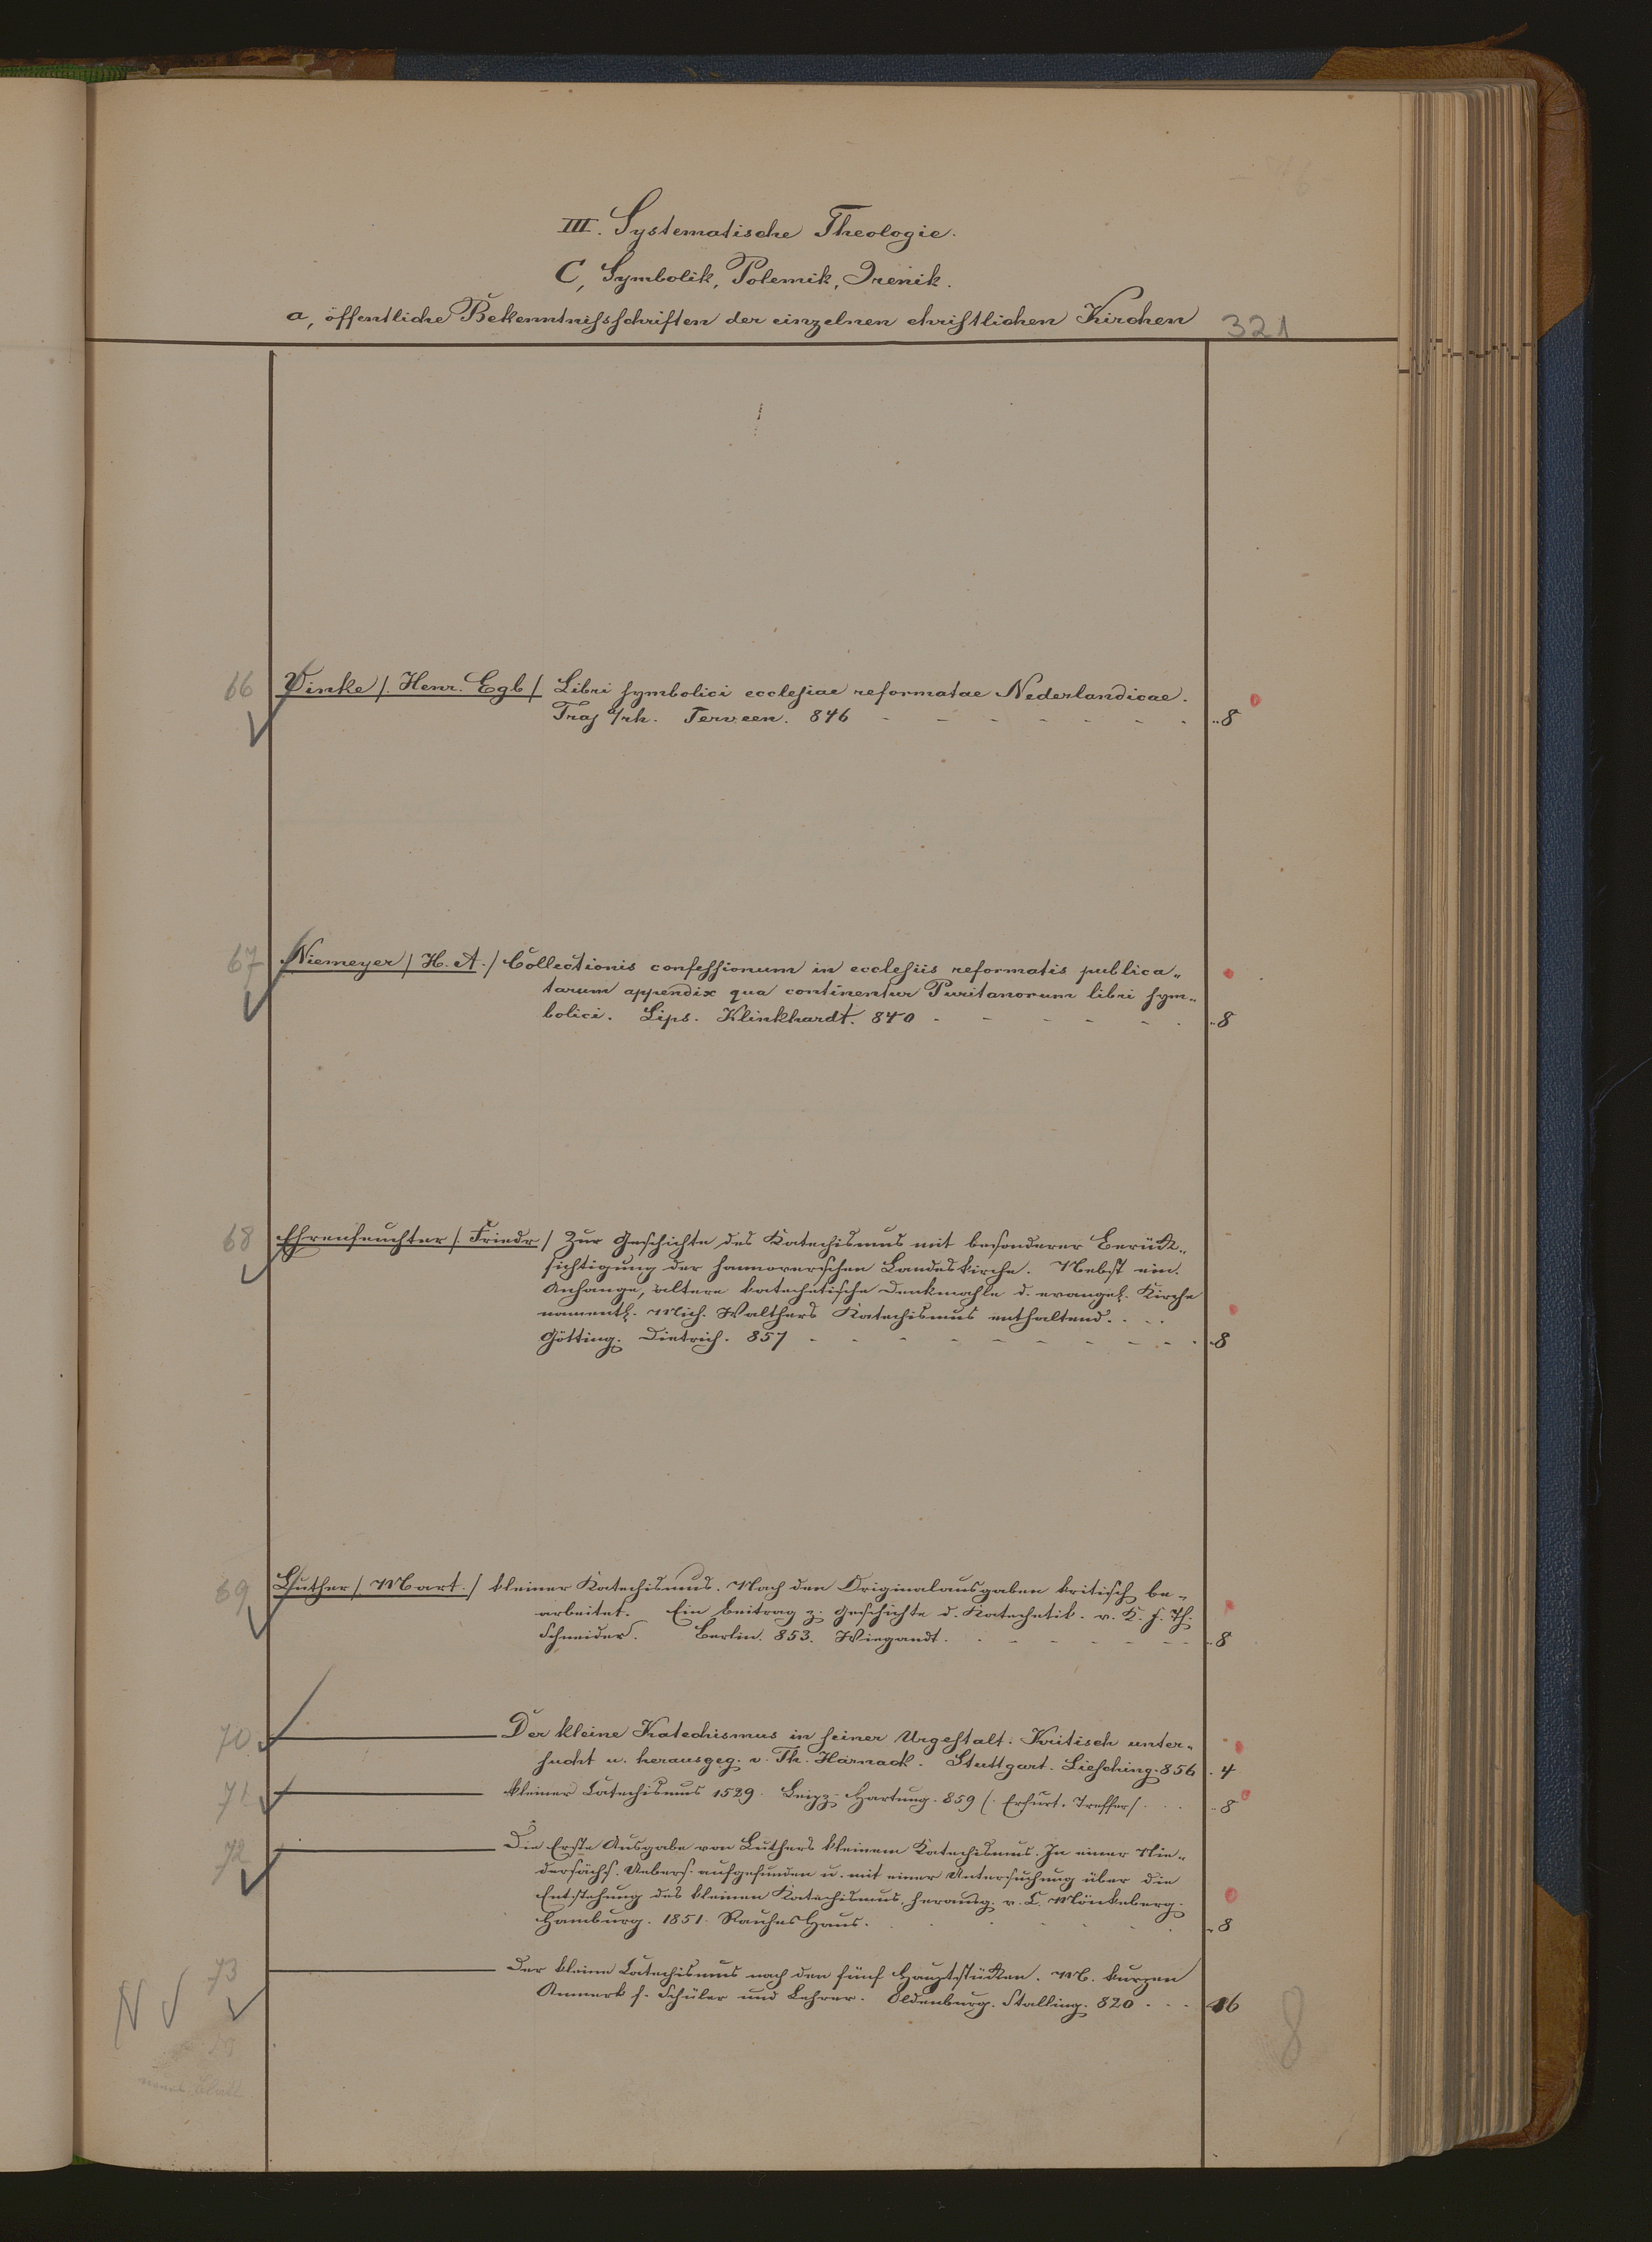 III. Systematische Theologie.
C, Symbolik, Polemik, Irenik.
a, öffentliche Bekenntnisschriften der einzelnen christlichen Kirchen 321
66 Vinke /. Henr. Egb / Libri symbolici ecclesiae reformatae Nederlandicae.
Traj a/rh. Terveen. 846 - - - - - - - ..8
67 Niemeyer / H. A. / Collectionis confessionum in ecclesiis reformatis publica„
tarum appendix qua continentur Puritanorum libri sym„
bolici. Lips. Klinkhardt. 840 - - - - - . ..8
68 Ehrenfeuchter /. Friedr / Zur Geschichte des Katechismus mit besonderer Berück„
sichtigung der hannoverschen Landeskirche. Nebst ein.
Anhange, ältere katechetische Denkmahle d. evangel. Kirche
namentl. Mich. Walthers Katechismus enthaltend. . . .
Götting. Dietrich. 857 - - - - - - - - - . .8
69 Luther /. Mart. / kleiner Katechismus. Nach den Originalausgaben kritisch be„
arbeitet. Ein Beitrag z. Geschichte d. Katechetik. v. K. F. Th.
Schneider. Berlin. 853. Wiegandt. . - - - - - - ..8
70 ——— Der kleine Katechismus in seiner Urgestalt. Kritisch unter„
sucht u. herausgeg. v. Th. Harnack. Stuttgart. Liesching. 856 . 4
71 ——— kleiner Catechismus 1529. Leipz. Hartung. 859 (. Erfurt. Treffer/. . . ..8
72 ——— Die Erste Ausgabe von Luthers kleinem Katechismus. In einer Nie„
dersächs. Uebers. aufgefunden u. mit einer Untersuchung über die
Entstehung des kleinen Katechismus, herausg. v. C. Mönkeberg.
Hamburg. 1851. Rauhes Haus. . . . . . ..8
73 ——— Der kleine Catechismus nach den fünf Hauptstücken. M. kurzen
Anmerk f. Schüler und Lehrer. Oldenburg. Stalling. 820 . . . 16
N
8